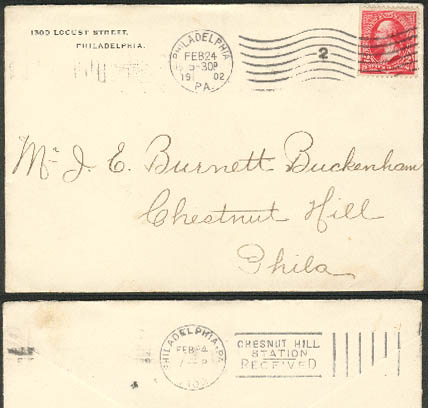 1300 LOCUST STREET,
PHILADELPHIA.
PHILADELPHIA
FEB 24
5-30P
19 02
PA.
2
2 2
Mr J. E. Burnett Buckenham
Chestnut Hill
Phila
PHILADELPHIA, PA.
FEB 24
CHESNUT HILL
STATION
RECEIVED